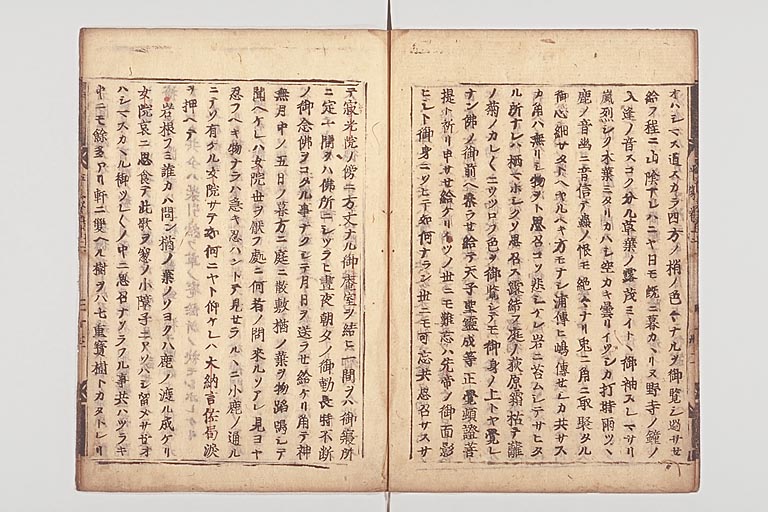 オハシマス道スカラ四方ノ梢ノ色々ナルヲ御覧シ過サセ
給フ程ニ山陰ナレハニヤ日モ既ニ暮カヽリヌ野寺ノ鐘ノ
入逢ノ音スコク分ル草葉ノ露茂ミイトヽ御袖スレマサリ
嵐烈シク木葉ミタリカハシ空カキ曇リイツシカ打時雨ツヽ
鹿ノ音幽ニ音信テ蟲ノ恨モ絶々ナリ兎ニ角ニ取聚タル
御心細サタトヘキルヘキ方モナシ浦傳ヒ嶋傳セシカ共サス
カ角ハ無リシ物ヲト思召コソ悲シケレ岩ニ苔ムシテサヒタ
ル所ナレハ栖マホシクソ思召ス露結フ庭ノ荻原霜枯テ籬
ノ菊ノカレ〱ニウツロフ色ヲ御覧シテモ御身ノ上トヤ覚シ
ケン佛ノ御前ヘ参ラせ給テ天子聖靈成等正覺頓證菩
提ト祈リ申サせ給ケリイツノ世ニモ難忘ハ先帝ノ御面影
ヒシト御身ニソヒテ如何ナラン世ニモ可忘共思召サスサ
テ寂光院ノ傍ニ方丈ナル御菴室ヲ結ヒ一間ヲハ御寝所
ニ定一間ヲハ佛所ニシツラヒ晝夜朝夕ノ御勤長時不断
ノ御念佛ヲコタル事ナクシテ月日ヲ送ラせ給ケリ角テ神
無月中ノ五日ノ暮方ニ庭ニ散敷楢ノ葉ヲ物蹈鳴シテ
聞ヘケレハ女院世ヲ厭フ處ニ何者ノ問來ルソアレ見ヨヤ
忍フヘキ物ナラハ急キ忍ハントテ見せラルヽニ小鹿ノ通ル
ニテソ有ケル女院サテ如何ニヤト仰ケレハ大納言佐局涙
ヲ押ヘテ
岩根フミ誰カハ問ン楢ノ葉ノソヨクハ鹿ノ渡ル成ケリ
女院哀ニ思食テ此歌ヲ窓ノ小障子ニアソハシ留メサせオ
ハシマスカヽル御ツレ〱ノ中ニ思召ナソラフル事共ハツラキ
中ニモ餘多アリ軒ニ雙ヘル樹ヲハ七重寳樹トカタトレリ